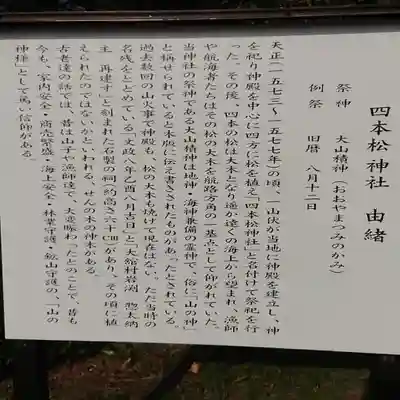 四本松神社 由緒
祭神 大山積神（おおやまつみのかみ）
例祭 旧暦 八月十二日
天正（一五七三～一五七七年）の頃、一山伏が当地に神殿を建立し、神
を祀り神殿を中心に四方に松を植え「四本松神社」と名付けて祭祀を行
った。その後、四本の松は大木となり遥か遠くの海上から望まれ、漁師
や航海者たちはその松の大木を航路方角の一基点として仰がれていた。
当神社の祭神である大山積神は地神・海神兼備の霊神で、俗に「山の神」
と称せられていると木版に伝え書きされたものがあったとされている。
過去数回の山火事で神殿も、松の大木も焼けて現在はない。ただ当時の
名残をとどめている「文政八年乙酉八月吉日」と「大舘村岩渕 惣太納
主 再建す」と刻まれた石製の祠（約高さ六十㎝）があり、その頃に植
えられたのではないかといわれる、せんの木の神木がある。
古老達の話では、昔は山子や漁師達で、大変賑わったとのことで、昔も
今も、家内安全・商売繁盛・海上安全・林業守護・鉱山守護の、「山の
神様」として篤い信仰がある。